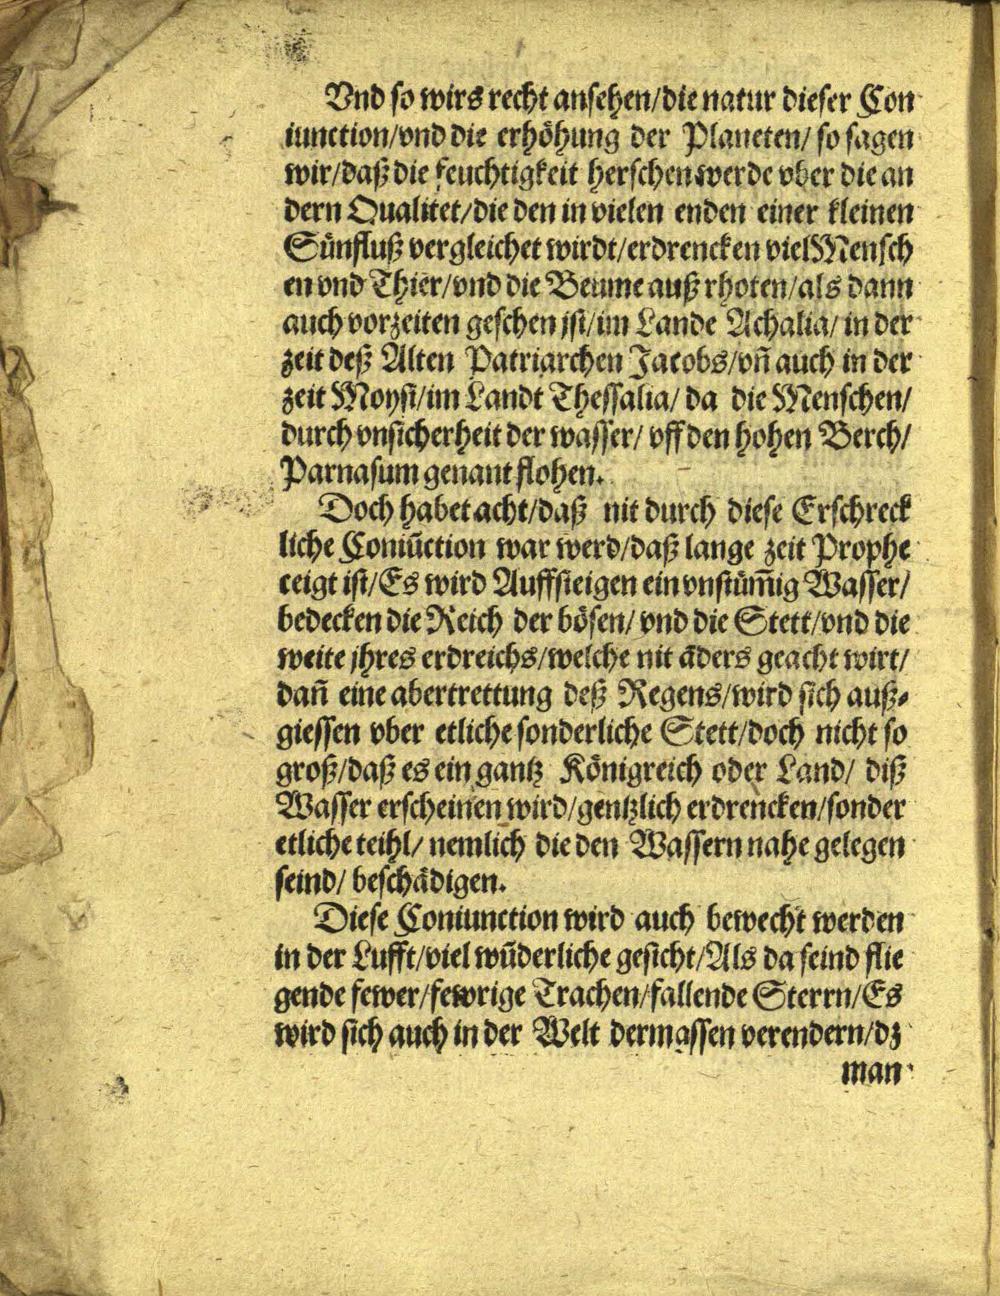 Vnd so wirs recht ansehen/die natur dieser Con
iunction/vnd die erhöhung der Planeten/ so sagen
wir/daß die feuchtigkeit herschen werde vber die an
dern Qualitet/die den in vielen enden einer kleinen
Sünfluß vergleichet wirdt/erdrencken viel Mensch
en vnd Thier/vnd die Beume auß rhoten/als dann
auch vorzeiten geschen jst/im Lande Achalia/ in der
zeit deß Alten Patriarchen Jacobs/vñ auch in der
zeit Moysi/im Landt Thessalia/ da die Menschen/
durch vnsicherheit der wasser/ vff den hohen Berch/
Parnasum genant flohen.
Doch habet acht/daß nit durch diese Erschreck
liche Coniũction war werd/daß lange zeit Prophe
teigt ist/Es wird Auffsteigen ein vnstüm̃ig Wasser/
bedecken die Reich der bösen/ vnd die Stett/vnd die
weite jhres erdreichs/welche nit ãders geacht wirt/
dañ eine abertrettung deß Regens/wird sich auß⸗
giessen vber etliche sonderliche Stett/doch nicht so
groß/daß es ein gantz Königreich oder Land/ diß
Wasser erscheinen wird/gentzlich erdrencken/sonder
etliche teihl/ nemlich die den Wassern nahe gelegen
seind/ beschädigen.
Diese Coniunction wird auch bewecht werden
in der Lufft/viel wũderliche gesicht/Als da seind flie
gende fewer/fewrige Trachen/fallende Sterrn/Es
wird sich auch in der Welt dermassen verendern/dz
man